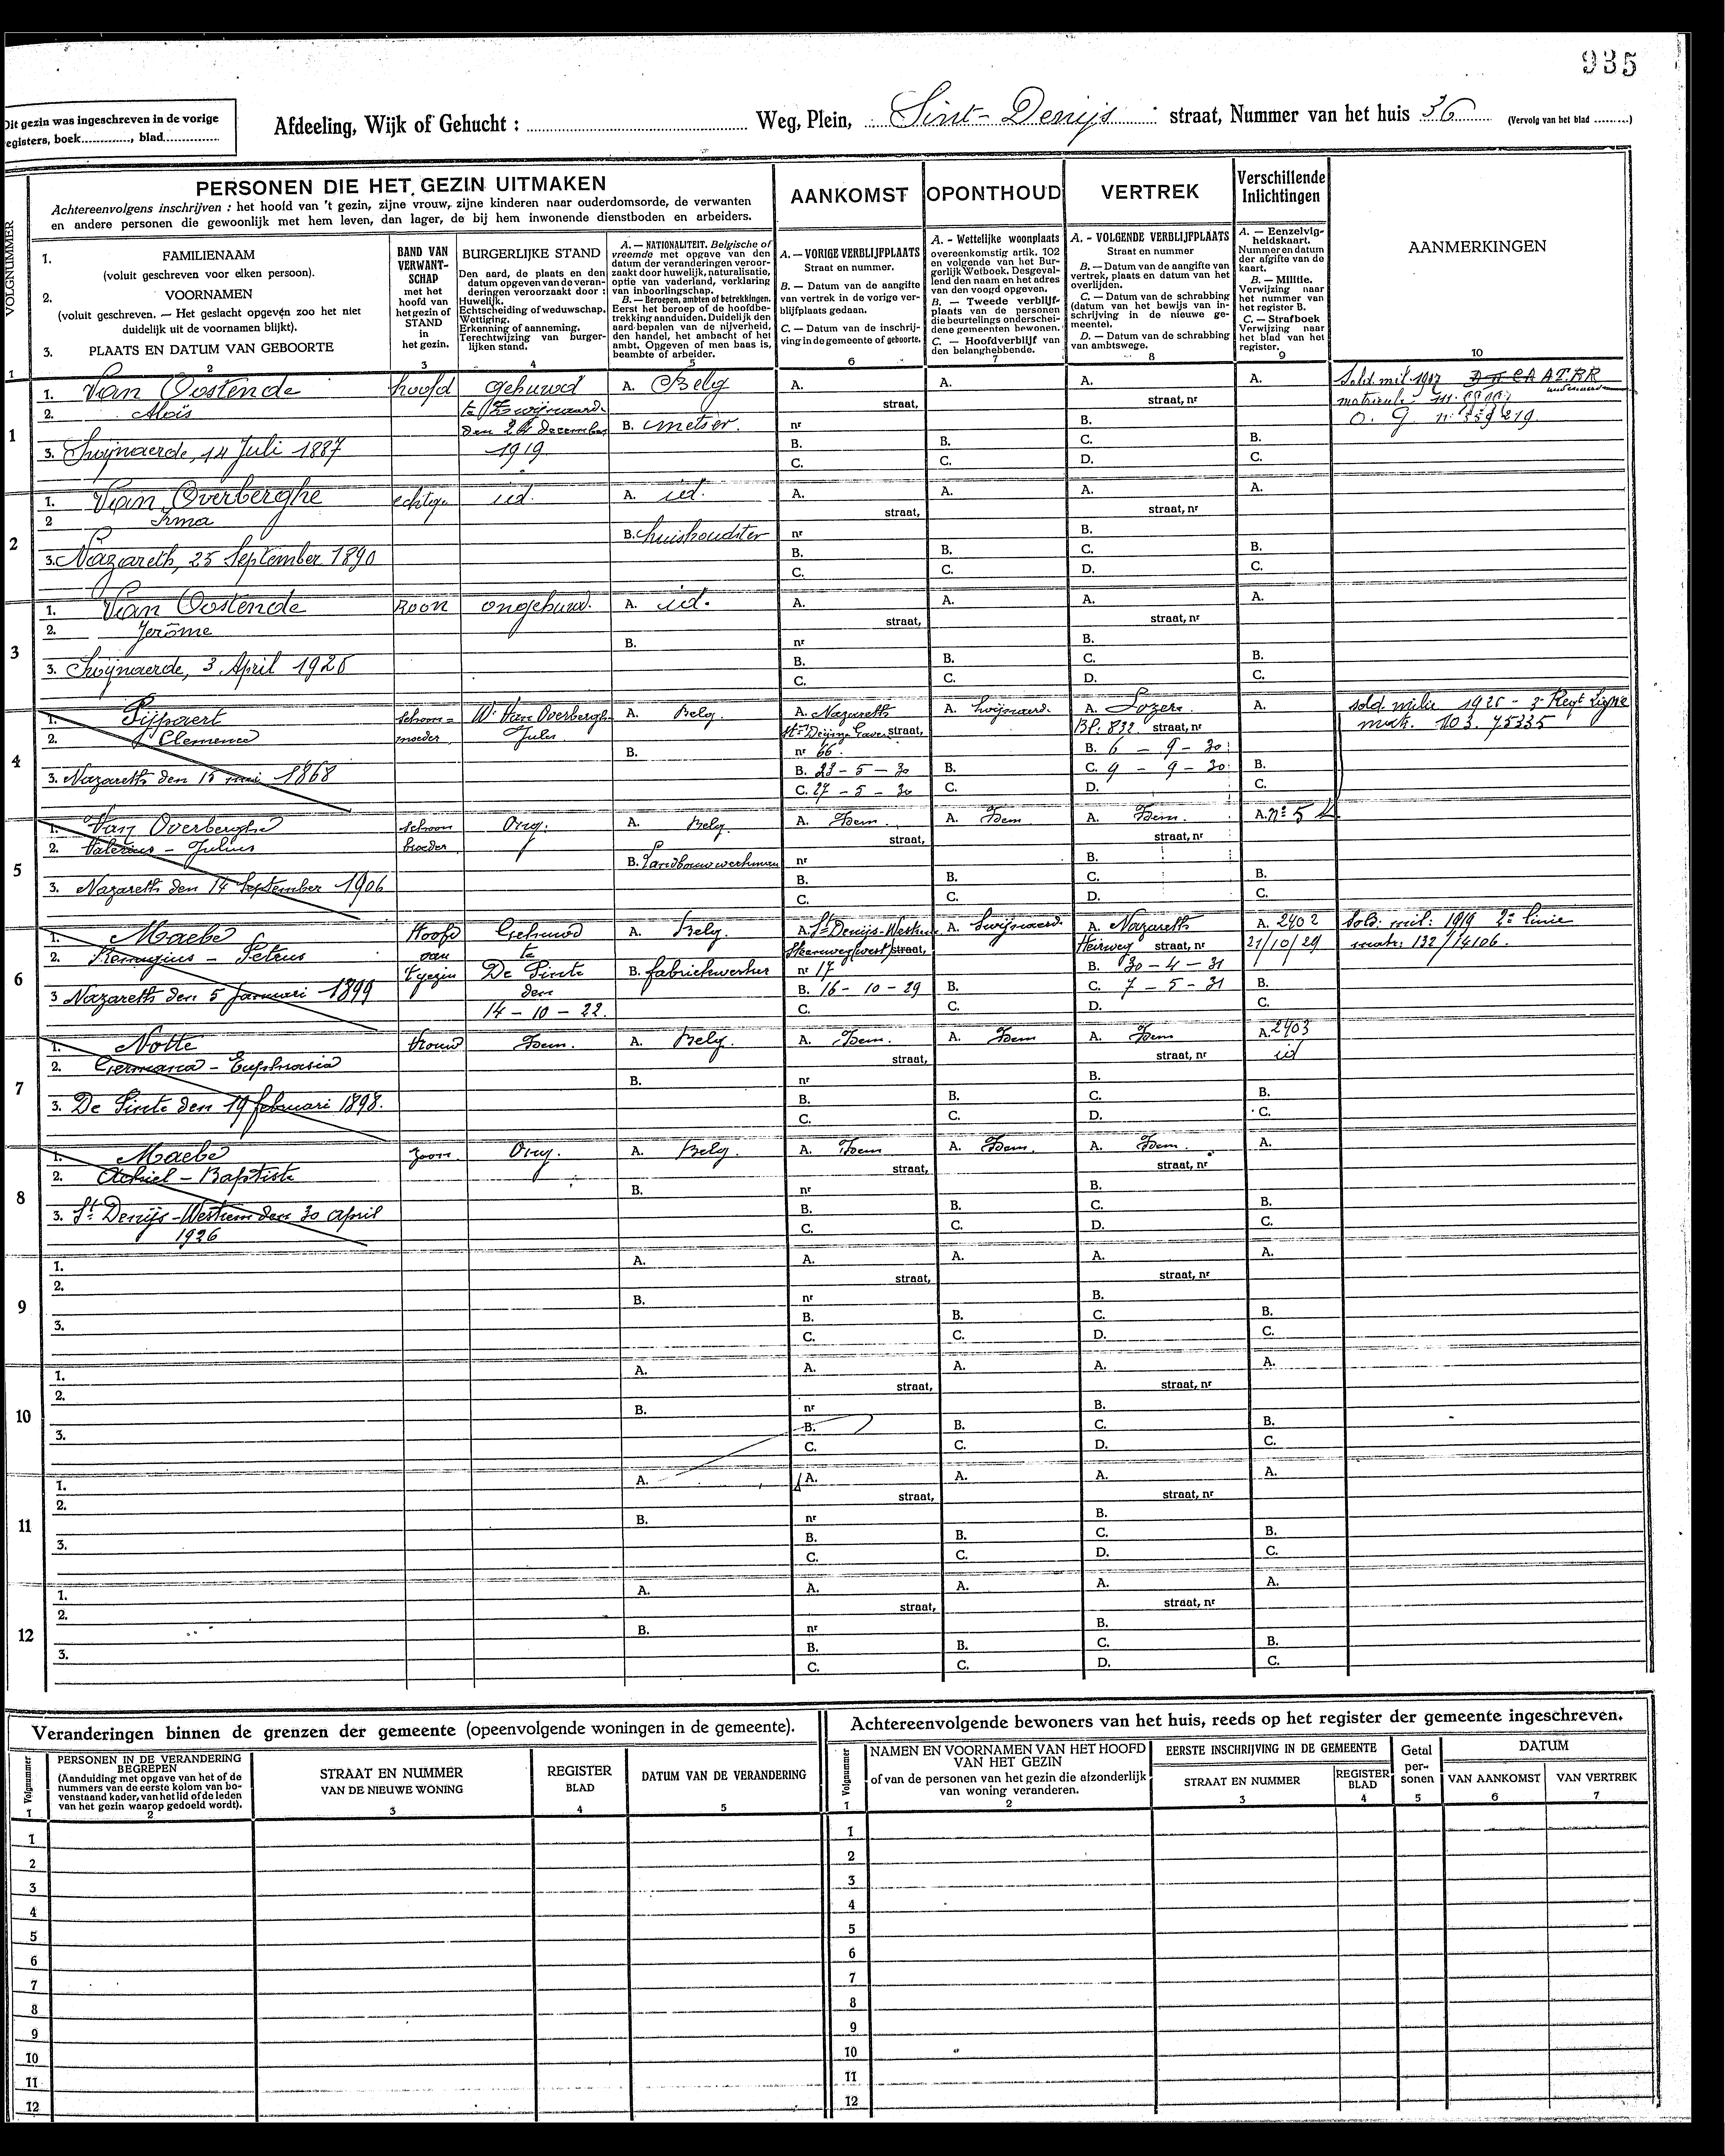 935
Dit gezin was ingeschreven in de vorige
registers, boek............, blad..............
Afdeeling, Wijk of Gehucht : .......... Weg, Plein, Sint-Denijs straat, Nummer van het huis 36 (Vervolg van het blad .........)
VOLGNUMMER
PERSONEN DIE HET GEZIN UITMAKEN
Achtereenvolgens inschrijven : het hoofd van 't gezin, zijne vrouw, zijne kinderen naar ouderdomsorde, de verwanten
en andere personen die gewoonlijk met hem leven, dan lager, de bij hem inwonende dienstboden en arbeiders.
AANKOMST OPONTHOUD VERTREK Verschillende Inlichtingen
AANMERKINGEN
1. FAMILIENAAM
(voluit geschreven voor elken persoon).
2. VOORNAMEN
(voluit geschreven. — Het geslacht opgeven zoo het niet
duidelijk uit de voornamen blijkt).
3. PLAATS EN DATUM VAN GEBOORTE
BAND VAN
VERWANT-
SCHAP
met het
hoofd van
het gezin of
STAND
in
het gezin.
BURGERLIJKE STAND
Den aard, de plaats en den
datum opgeven van de veran-
deringen veroorzaakt door :
Huwelijk.
Echtscheiding of weduwschap.
Wettiging.
Erkenning of aanneming.
Terechtwijzing van burger-
lijken stand.
A. — NATIONALITEIT. Belgische of
vreemde met opgave van den
datum der veranderingen veroor-
zaakt door huwelijk, naturalisatie,
optie van vaderland, verklaring
van inboorlingschap.
B. — Beroepen, ambten of betrekkingen.
Eerst het beroep of de hoofdbe-
trekking aanduiden. Duidelijk den
aard bepalen van de nijverheid,
den handel, het ambacht of het
ambt. Opgeven of men baas is,
beambte of arbeider.
A. — VORIGE VERBLIJFPLAATS
Straat en nummer.
B. — Datum van de aangifte
van vertrek in de vorige ver-
blijfplaats gedaan.
C. — Datum van de inschrij-
ving in de gemeente of geboorte.
A. - Wettelijke woonplaats
overeenkomstig artik. 102
en volgende van het Bur-
gerlijk Wetboek. Desgeval-
lend den naam en het adres
van den voogd opgeven.
B. — Tweede verblijf-
plaats van de personen
die beurtelings onderschei-
dene gemeenten bewonen.
C. — Hoofdverblijf van
den belanghebbende.
A. - VOLGENDE VERBLIJFPLAATS
Straat en nummer
B. — Datum van de aangifte van
vertrek, plaats en datum van het
overlijden.
C. — Datum van de schrabbing
(datum van het bewijs van in-
schrijving in de nieuwe ge-
meente).
D. — Datum van de schrabbing
van ambtswege.
A. — Eenzelvig-
heidskaart.
Nummer en datum
der afgifte van de
kaart.
B. — Militie.
Verwijzing naar
het nummer van
het register B.
C. — Strafboek
Verwijzing naar
het blad van het
register.
1 2 3 4 5 6 7 8 9 10
1
1. Van Oostende hoofd gehuwd A. Belg A. A. A. A. Sold. mil. 1907
2. Aloïs te Zwijnaarde straat, straat, nr
den 24 december B. metser. nr B. O. G. n: 559219
3. Swijnaerde, 14 Juli 1887 1919 B. B. C. B.
C. C. D. C.
2
1. Van Overberghe echtge. id. A. id. A. A. A. A.
2 Irma straat, straat, nr
B. huishoudster nr B.
3. Nazareth, 25 September 1890 B. B. C. B.
C. C. D. C.
3
1. Van Oostende zoon ongehuwd. A. id. A. A. A. A.
2. Jerôme straat, straat, nr
B. nr B.
3. Swijnaerde, 3 April 1926 B. B. C. B.
C. C. D. C.
4
1. Pijpaert schoon= We Van Overbergh A. Belg. A. Nazareth A. Swijnaard. A. Lozer. A. sold. milie 1926 - 3e Regt Ligne
2. Clemence moeder Jules straat, Bl: 832 straat, nr matr. 103. 75335
B. nr 66. B. 6 - 9 - 30
3. Nazareth den 15 mei 1868 B. 23 - 5 - 30 B. C. 9 - 9 - 30 B.
C. 27 - 5 - 30 C. D. C.
5
1. Van Overberghe schoon Ong. A. Belg. A. Idem. A. Idem A. Idem. A. n: 5
2. Valerius - Julius broeder straat, straat, nr
B. Landbouwwerkman nr B.
3. Nazareth den 14 September 1906 B. B. C. B.
C. C. D. C.
6
1. Maebe Hoofd Gehuwd A. Belg. A. St Denijs-Westrem A. Swijnaard. A. Nazareth A. 2402 Sold. mil: 1919 2e linie
2. Remigius - Petrus van te Steenweg (west) straat, Heirweg straat, nr 21/10/29 matr: 132/14106.
't gezin De Pinte B. fabriekwerker nr 17 B. 30 - 4 - 31
3 Nazareth den 5 Januari 1899 den B. 16 - 10 - 29 B. C. 7 - 5 - 31 B.
14 - 10 - 22. C. C. D. C.
7
1. Notte Vrouw Idem. A. Belg. A. Idem. A. Idem A. Idem A. 2403
2. Germana - Euphrasia straat, straat, nr id
B. nr B.
3. De Pinte den 19 februari 1898. B. B. C. B.
C. C. D. C.
8
1. Maebe zoon. Ong. A. Belg. A. Idem A. Idem. A. Idem. A.
2. Achiel - Baptiste straat, straat, nr
B. nr B.
3. St Denijs-Westrem den 30 april B. B. C. B.
1926 C. C. D. C.
9
1. A. A. A. A. A.
2. straat, straat, nr
B. nr B.
3. B. B. C. B.
C. C. D. C.
10
1. A. A. A. A. A.
2. straat, straat, nr
B. nr B.
3. B. B. C. B.
C. C. D. C.
11
1. A. A. A. A. A.
2. straat, straat, nr
B. nr B.
3. B. B. C. B.
C. C. D. C.
12
1. A. A. A. A. A.
2. straat, straat, nr
B. nr B.
3. B. B. C. B.
C. C. D. C.
Veranderingen binnen de grenzen der gemeente (opeenvolgende woningen in de gemeente).
Volgnummer
PERSONEN IN DE VERANDERING
BEGREPEN
(Aanduiding met opgave van het of de
nummers van de eerste kolom van bo-
venstaand kader, van het lid of de leden
van het gezin waarop gedoeld wordt).
STRAAT EN NUMMER
VAN DE NIEUWE WONING
REGISTER
BLAD
DATUM VAN DE VERANDERING
1 2 3 4 5
1
2
3
4
5
6
7
8
9
10
11
12
Achtereenvolgende bewoners van het huis, reeds op het register der gemeente ingeschreven.
Volgnummer
NAMEN EN VOORNAMEN VAN HET HOOFD
VAN HET GEZIN
of van de personen van het gezin die afzonderlijk
van woning veranderen.
EERSTE INSCHRIJVING IN DE GEMEENTE
STRAAT EN NUMMER
REGISTER
BLAD
Getal
per-
sonen
DATUM
VAN AANKOMST VAN VERTREK
1 2 3 4 5 6 7
1
2
3
4
5
6
7
8
9
10
11
12